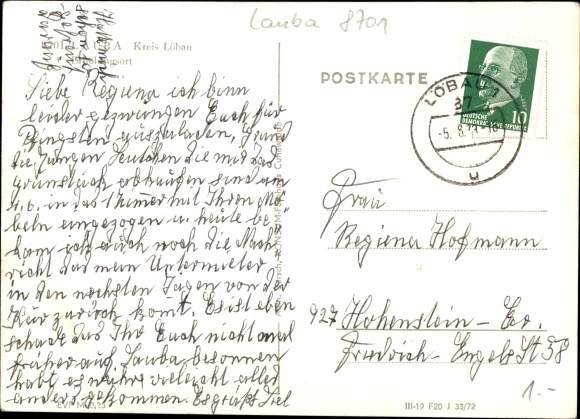 Lauba 8701
LAUBA Kreis Löbau
Erholungsort
POSTKARTE
LÖBAU 1
-5. 6.
u
10
DEUTSCHE
DEMOKRATISCHE REPUBLIK
Liebe Regiena ich binn
leider gezwungen Euch für
Pfingsten auszuladen, Grund
die Jungen Leutchen die mit das
Grunstück abkaufen sind am
4.6. in das 1 Zimmer mit Ihren Mö-
beln eingezogen u. heute be-
kam ich auch noch die Nach-
richt das mein Untermieter
in den nächsten Tagen von der
Kur zurück komt. Es ist eben
schade das Ihr Euch nicht mal
früher auf Lauba besonnen
habt es währe vieleicht alles
anders gekommen. Es grüßt Viel
Frau
Regiena Hofmann
927 Hohenstein - Er.
Friedrich - Engels St 38
1.-
EVP M 0,25
III-19 F20 J 33/72